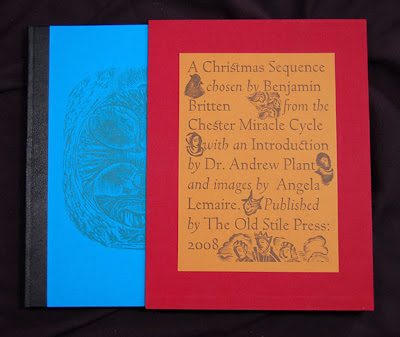 A Christmas Sequence
chosen by Benjamin
Britten from the
Chester Miracle Cycle
with an Introduction
by Dr. Andrew Plant
and images by Angela
Lemaire. Published
by The Old Stile Press:
2008